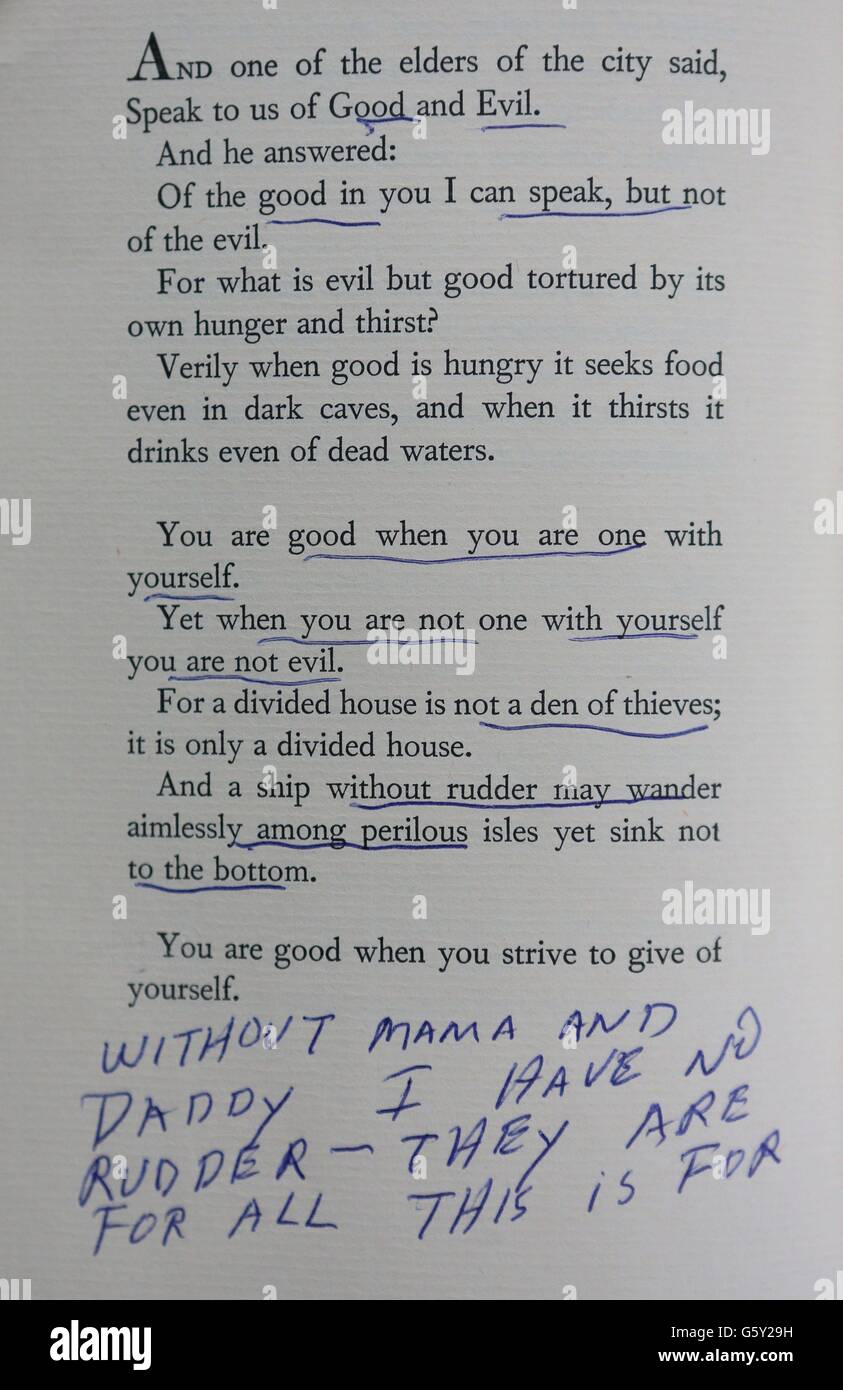 AND one of the elders of the city said,
Speak to us of Good and Evil.
And he answered:
Of the good in you I can speak, but not
of the evil.
For what is evil but good tortured by its
own hunger and thirst?
Verily when good is hungry it seeks food
even in dark caves, and when it thirsts it
drinks even of dead waters.
You are good when you are one with
yourself.
Yet when you are not one with yourself
you are not evil.
For a divided house is not a den of thieves;
it is only a divided house.
And a ship without rudder may wander
aimlessly among perilous isles yet sink not
to the bottom.
You are good when you strive to give of
yourself.
WITHOUT MAMA AND
DADDY I HAVE NO
RUDDER — THEY ARE
FOR ALL THIS IS FOR
alamy
Image ID: G5Y29H
www.alamy.com